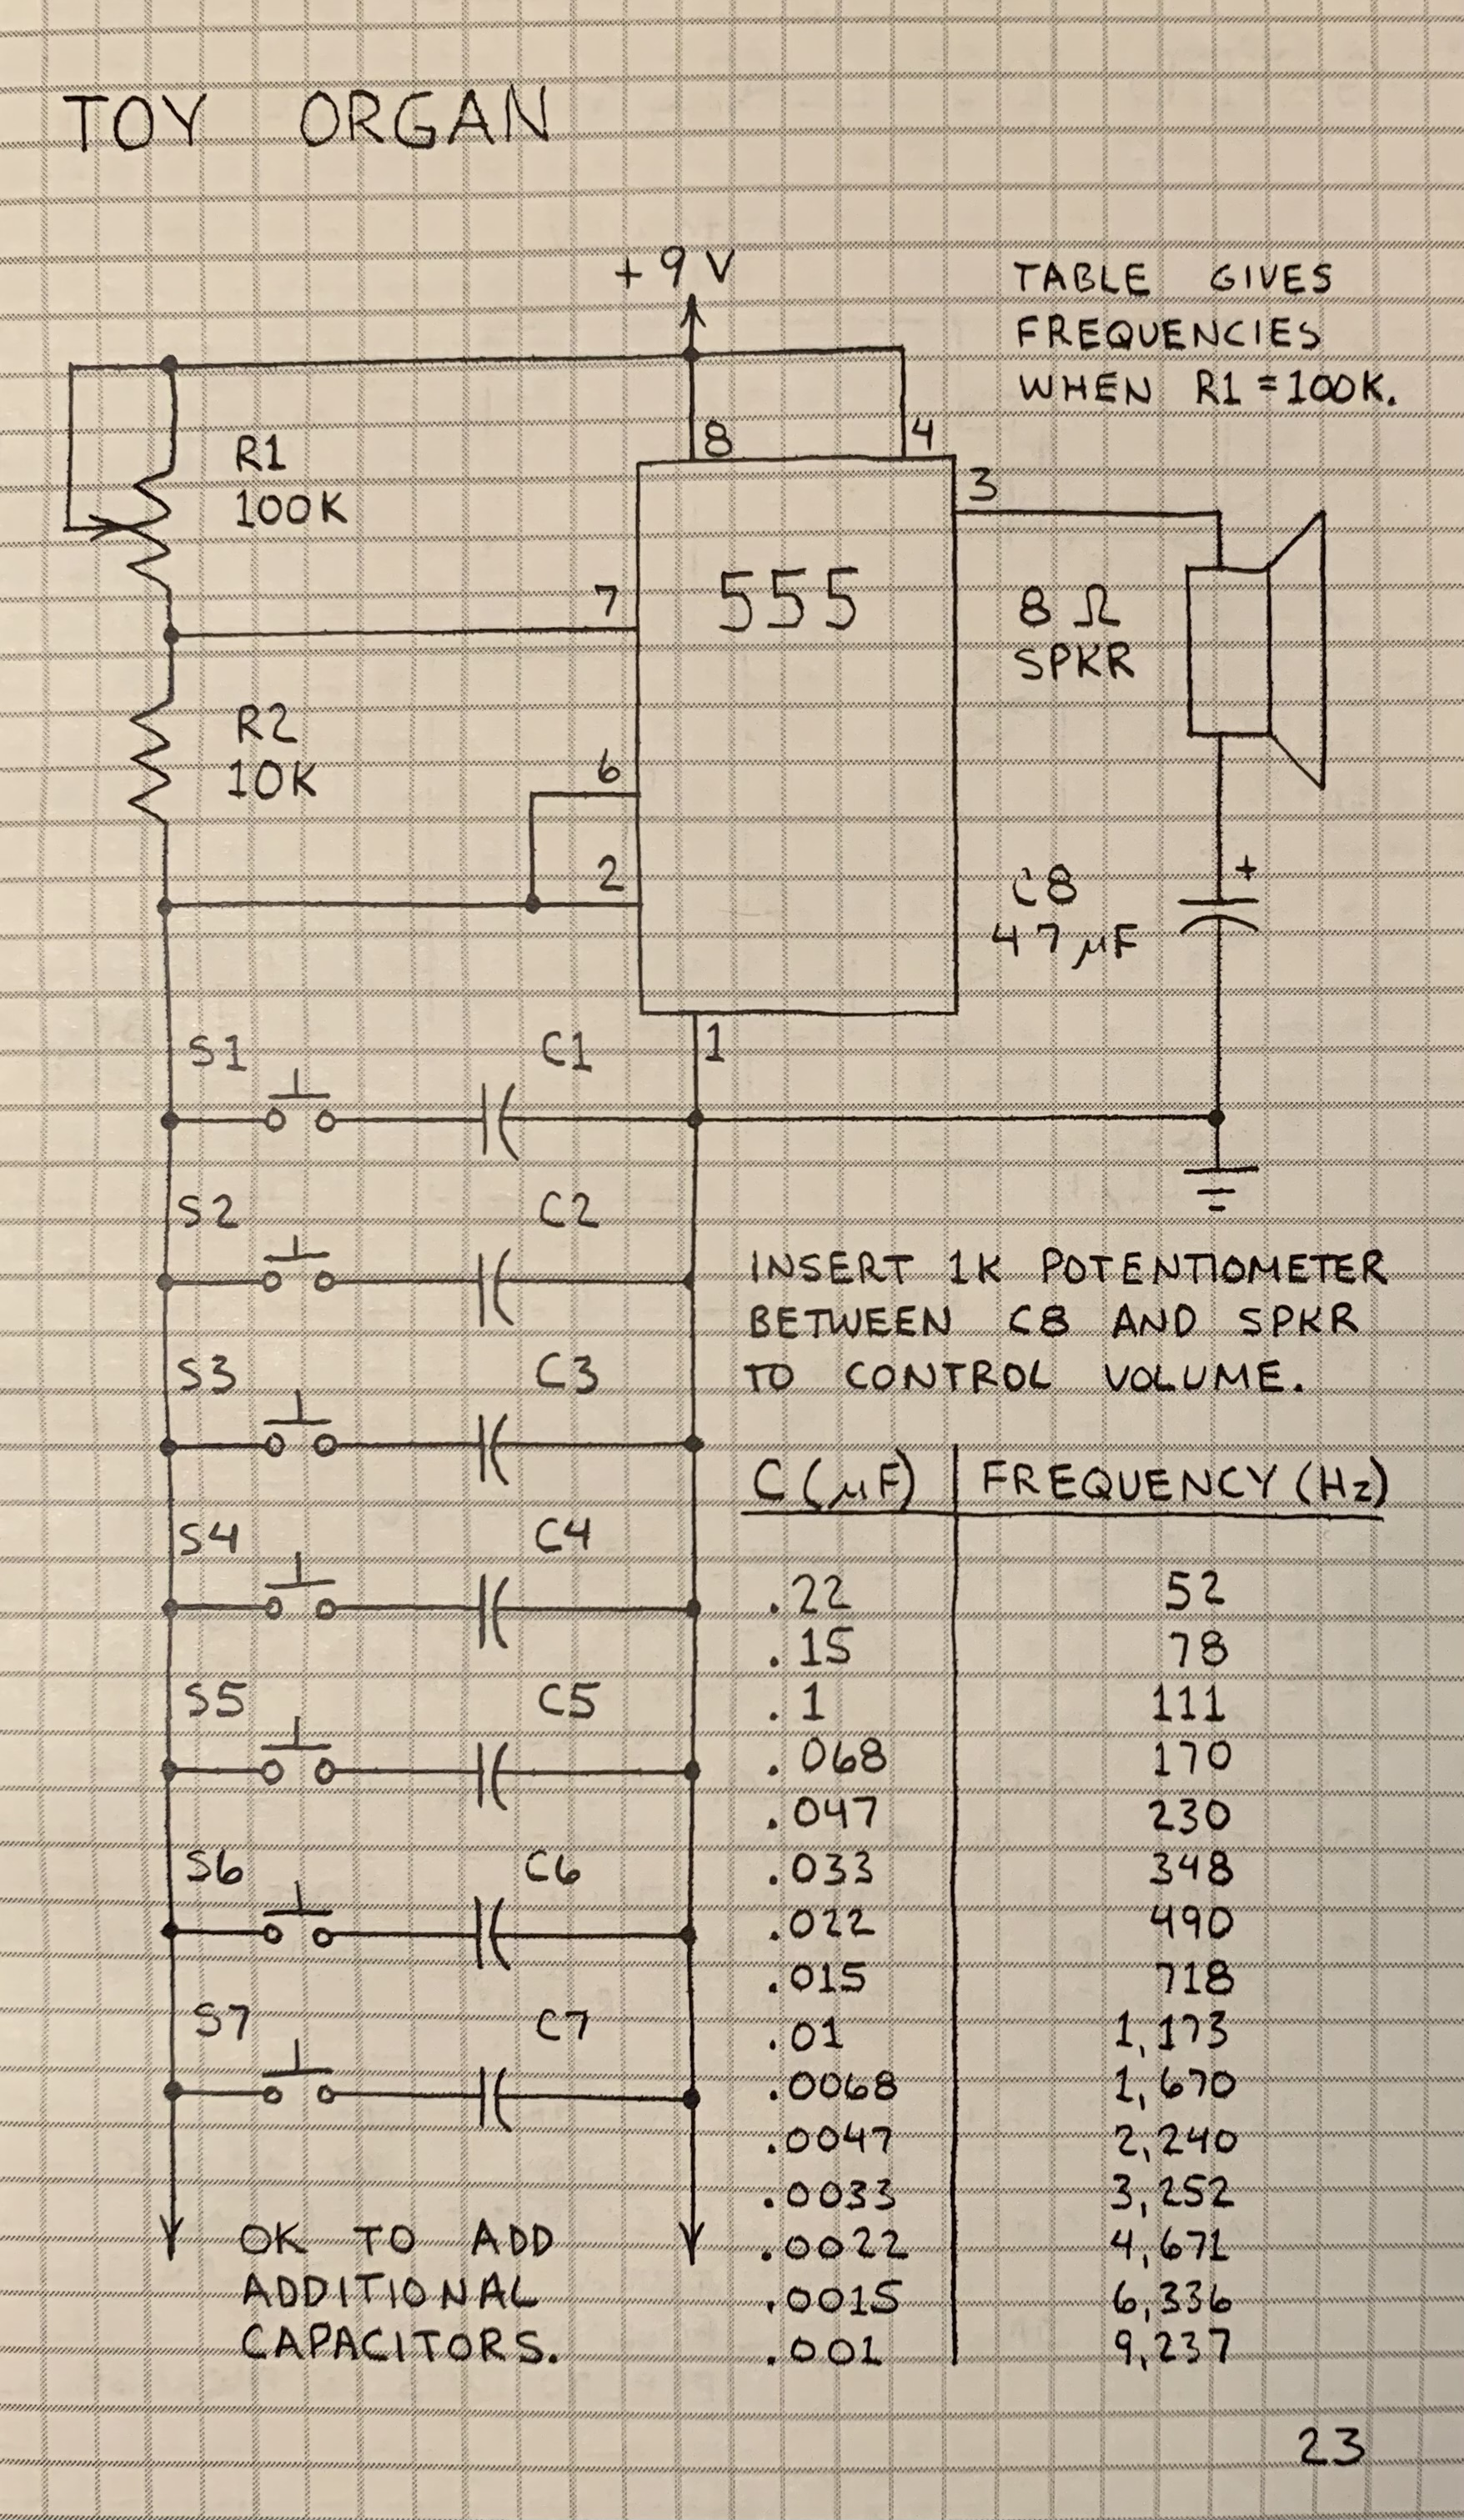 TOY ORGAN
+9V
TABLE GIVES
FREQUENCIES
WHEN R1 = 100K.
8
4
R1
100K
3
7
555
8 Ω
SPKR
R2
10K
6
2
+
C8
47 µF
1
S1
C1
S2
C2
INSERT 1K POTENTIOMETER
BETWEEN C8 AND SPKR
TO CONTROL VOLUME.
S3
C3
S4
C4
S5
C5
S6
C6
S7
C7
OK TO ADD
ADDITIONAL
CAPACITORS.
C (µF) FREQUENCY (Hz)
.22 52
.15 78
.1 111
.068 170
.047 230
.033 348
.022 490
.015 718
.01 1,173
.0068 1,670
.0047 2,240
.0033 3,252
.0022 4,671
.0015 6,336
.001 9,237
23